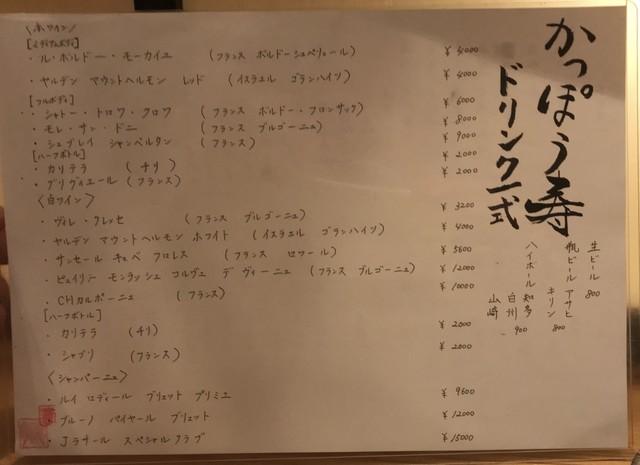 かっぽう寿
ドリンク一式
生ビール 800
瓶ビール アサヒ キリン 800
ハイボール 知多 白州 山崎 900
〈赤ワイン〉
[ミディアムボディ]
・ル・ボルドー・モーカイユ (フランス ボルドーシュペリュール) ¥5000
・ヤルデン マウントヘルモン レッド (イスラエル ゴランハイツ) ¥4000
[フルボディ]
・シャトー・トロワ・クロワ (フランス ボルドー・フロンサック) ¥6000
・モレ・サン・ドニ (フランス ブルゴーニュ) ¥8000
・ジュブレイ シャンベルタン (フランス) ¥9000
[ハーフボトル]
・カリテラ (チリ) ¥2000
・ブリヴィエール (フランス) ¥2000
〈白ワイン〉
・ヴィレ・クレッセ (フランス ブルゴーニュ) ¥3200
・ヤルデン マウントヘルモン ホワイト (イスラエル ゴランハイツ) ¥4000
・サンセール キュベ フロレス (フランス ロワール) ¥5600
・ピュイリニー モンラッシュ コルヴェ デ ヴィーニュ (フランス ブルゴーニュ) ¥12000
・CHカルボーニュ (フランス) ¥10000
[ハーフボトル]
・カリテラ (チリ) ¥2000
・シャブリ (フランス) ¥2000
〈シャンパーニュ〉
・ルイ ロディール ブリュット プルミエ ¥9600
・ブルーノ パイヤール ブリュット ¥12000
・Jラサール スペシャルクラブ ¥15000